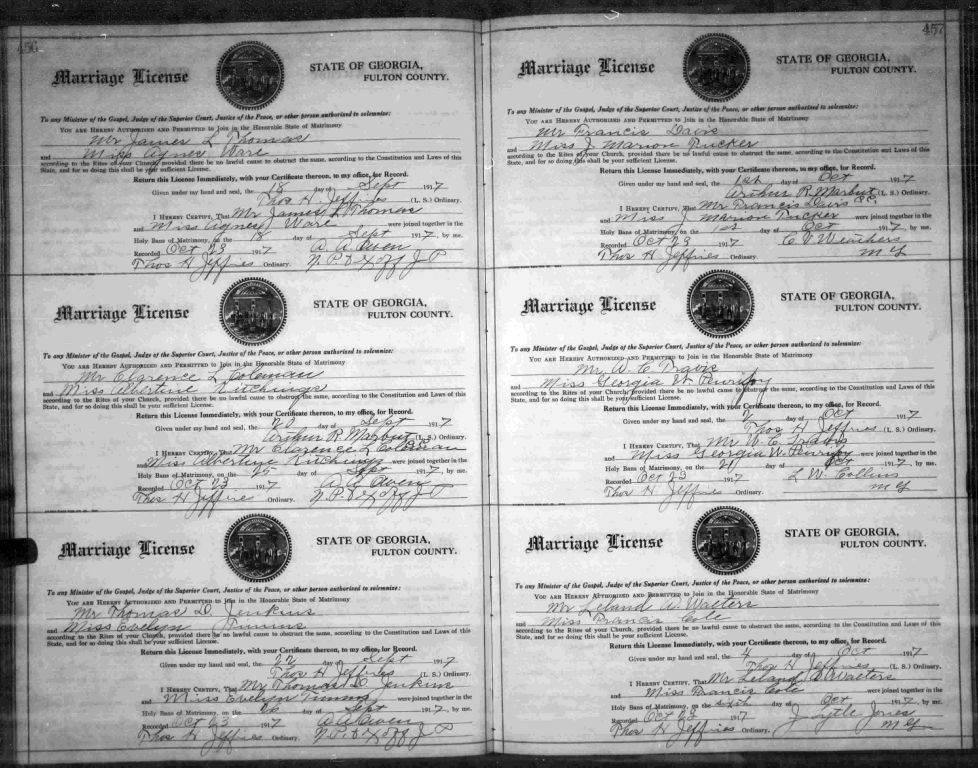 456
Marriage License
STATE OF GEORGIA,
FULTON COUNTY.
To any Minister of the Gospel, Judge of the Superior Court, Justice of the Peace, or other person authorized to solemnize:
YOU ARE HEREBY AUTHORIZED AND PERMITTED to Join in the Honorable State of Matrimony
Mr James L Thomas
and Miss Agnes Ware
according to the Rites of your Church, provided there be no lawful cause to obstruct the same, according to the Constitution and Laws of this
State, and for so doing this shall be your sufficient License.
Return this License Immediately, with your Certificate thereon, to my office, for Record.
Given under my hand and seal, the 18 day of Sept 1917
Thos H Jeffries (L. S.) Ordinary.
I HEREBY CERTIFY, That Mr James L Thomas
and Miss Agnes Ware were joined together in the
Holy Bans of Matrimony, on the 18 day of Sept 1917, by me.
Recorded Oct 23 1917 A. A. Owen
Thos H Jeffries Ordinary. J P
Marriage License
STATE OF GEORGIA,
FULTON COUNTY.
To any Minister of the Gospel, Judge of the Superior Court, Justice of the Peace, or other person authorized to solemnize:
YOU ARE HEREBY AUTHORIZED AND PERMITTED to Join in the Honorable State of Matrimony
Mr Clarence L Coleman
and Miss Albertine Hitchings
according to the Rites of your Church, provided there be no lawful cause to obstruct the same, according to the Constitution and Laws of this
State, and for so doing this shall be your sufficient License.
Return this License Immediately, with your Certificate thereon, to my office, for Record.
Given under my hand and seal, the 20 day of Sept 1917
Arthur R Marbut (L. S.) Ordinary.
I HEREBY CERTIFY, That Mr Clarence L Coleman
and Miss Albertine were joined together in the
Holy Bans of Matrimony, on the day of Sept 1917, by me.
Recorded Oct 23 1917 A. A. Owen
Thos H Jeffries Ordinary. J P
Marriage License
STATE OF GEORGIA,
FULTON COUNTY.
To any Minister of the Gospel, Judge of the Superior Court, Justice of the Peace, or other person authorized to solemnize:
YOU ARE HEREBY AUTHORIZED AND PERMITTED to Join in the Honorable State of Matrimony
Mr Thomas D. Jenkins
and Miss Evelyn Timms
according to the Rites of your Church, provided there be no lawful cause to obstruct the same, according to the Constitution and Laws of this
State, and for so doing this shall be your sufficient License.
Return this License Immediately, with your Certificate thereon, to my office, for Record.
Given under my hand and seal, the 22 day of Sept 1917
Thos H Jeffries (L. S.) Ordinary.
I HEREBY CERTIFY, That Mr Thomas D. Jenkins
and Miss Evelyn Timms were joined together in the
Holy Bans of Matrimony, on the 26 day of Sept 1917, by me.
Recorded Oct 23 1917 A. A. Owen
Thos H Jeffries Ordinary. J P
457
Marriage License
STATE OF GEORGIA,
FULTON COUNTY.
To any Minister of the Gospel, Judge of the Superior Court, Justice of the Peace, or other person authorized to solemnize:
YOU ARE HEREBY AUTHORIZED AND PERMITTED to Join in the Honorable State of Matrimony
Mr Francis Davis
and Miss J Marion Rucker
according to the Rites of your Church, provided there be no lawful cause to obstruct the same, according to the Constitution and Laws of this
State, and for so doing this shall be your sufficient License.
Return this License Immediately, with your Certificate thereon, to my office, for Record.
Given under my hand and seal, the 1st day of Oct 1917
Arthur R. Marbut (L. S.) Ordinary.
I HEREBY CERTIFY, That Mr Francis Davis
and Miss J Marion Rucker were joined together in the
Holy Bans of Matrimony, on the 1st day of Oct 1917, by me.
Recorded Oct 23 1917 C. V Weathers
Thos H Jeffries Ordinary. M G
Marriage License
STATE OF GEORGIA,
FULTON COUNTY.
To any Minister of the Gospel, Judge of the Superior Court, Justice of the Peace, or other person authorized to solemnize:
YOU ARE HEREBY AUTHORIZED AND PERMITTED to Join in the Honorable State of Matrimony
Mr W. C Travis
and Miss Georgia W. Penrifoy
according to the Rites of your Church, provided there be no lawful cause to obstruct the same, according to the Constitution and Laws of this
State, and for so doing this shall be your sufficient License.
Return this License Immediately, with your Certificate thereon, to my office, for Record.
Given under my hand and seal, the 2 day of Oct 1917
Thos H Jeffries (L. S.) Ordinary.
I HEREBY CERTIFY, That Mr W. C. Travis
and Miss Georgia W. Penrifoy were joined together in the
Holy Bans of Matrimony, on the 21 day of Oct 1917, by me.
Recorded Oct 23 1917 L W. Collins
Thos H Jeffries Ordinary. M G
Marriage License
STATE OF GEORGIA,
FULTON COUNTY.
To any Minister of the Gospel, Judge of the Superior Court, Justice of the Peace, or other person authorized to solemnize:
YOU ARE HEREBY AUTHORIZED AND PERMITTED to Join in the Honorable State of Matrimony
Mr Leland A. Walters
and Miss Francis Cole
according to the Rites of your Church, provided there be no lawful cause to obstruct the same, according to the Constitution and Laws of this
State, and for so doing this shall be your sufficient License.
Return this License Immediately, with your Certificate thereon, to my office, for Record.
Given under my hand and seal, the 4 day of Oct 1917
Thos H Jeffries (L. S.) Ordinary.
I HEREBY CERTIFY, That Mr Leland A Walters
and Miss Francis Cole were joined together in the
Holy Bans of Matrimony, on the sixth day of Oct 1917, by me.
Recorded Oct 23 1917 J Lytle Jones
Thos H Jeffries Ordinary. M G